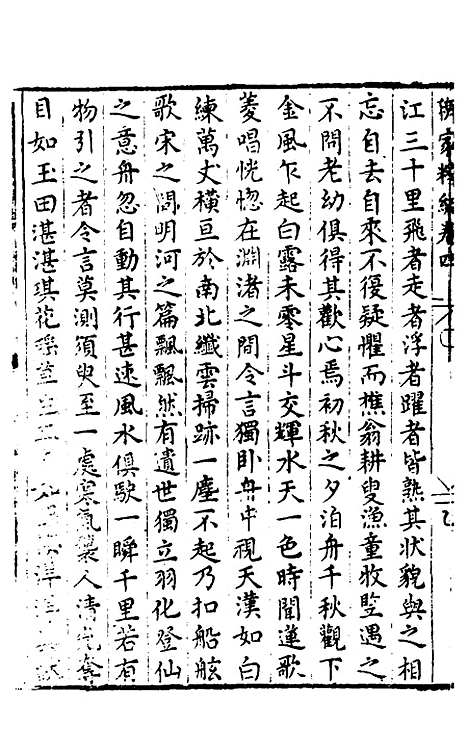 稗家粹編卷四
江三十里飛者走者浮者躍者皆熟其狀貌與之相
忘自去自來不復疑懼而樵翁耕叟漁童牧豎遇之
不問老幼俱得其歡心焉初秋之夕泊舟千秋觀下
金風乍起白露未零星斗交輝水天一色時聞蓮歌
菱唱恍惚在淵渚之間令言獨卧舟中視天漢如白
練萬丈橫亘於南北纖雲掃跡一塵不起乃扣船舷
歌宋之問明河之篇飄飄然有遺世獨立羽化登仙
之意舟忽自動其行甚速風水俱駛一瞬千里若有
物引之者令言莫測須臾至一處寒氣襲人清光奪
目如玉田湛湛琪花瑶草生